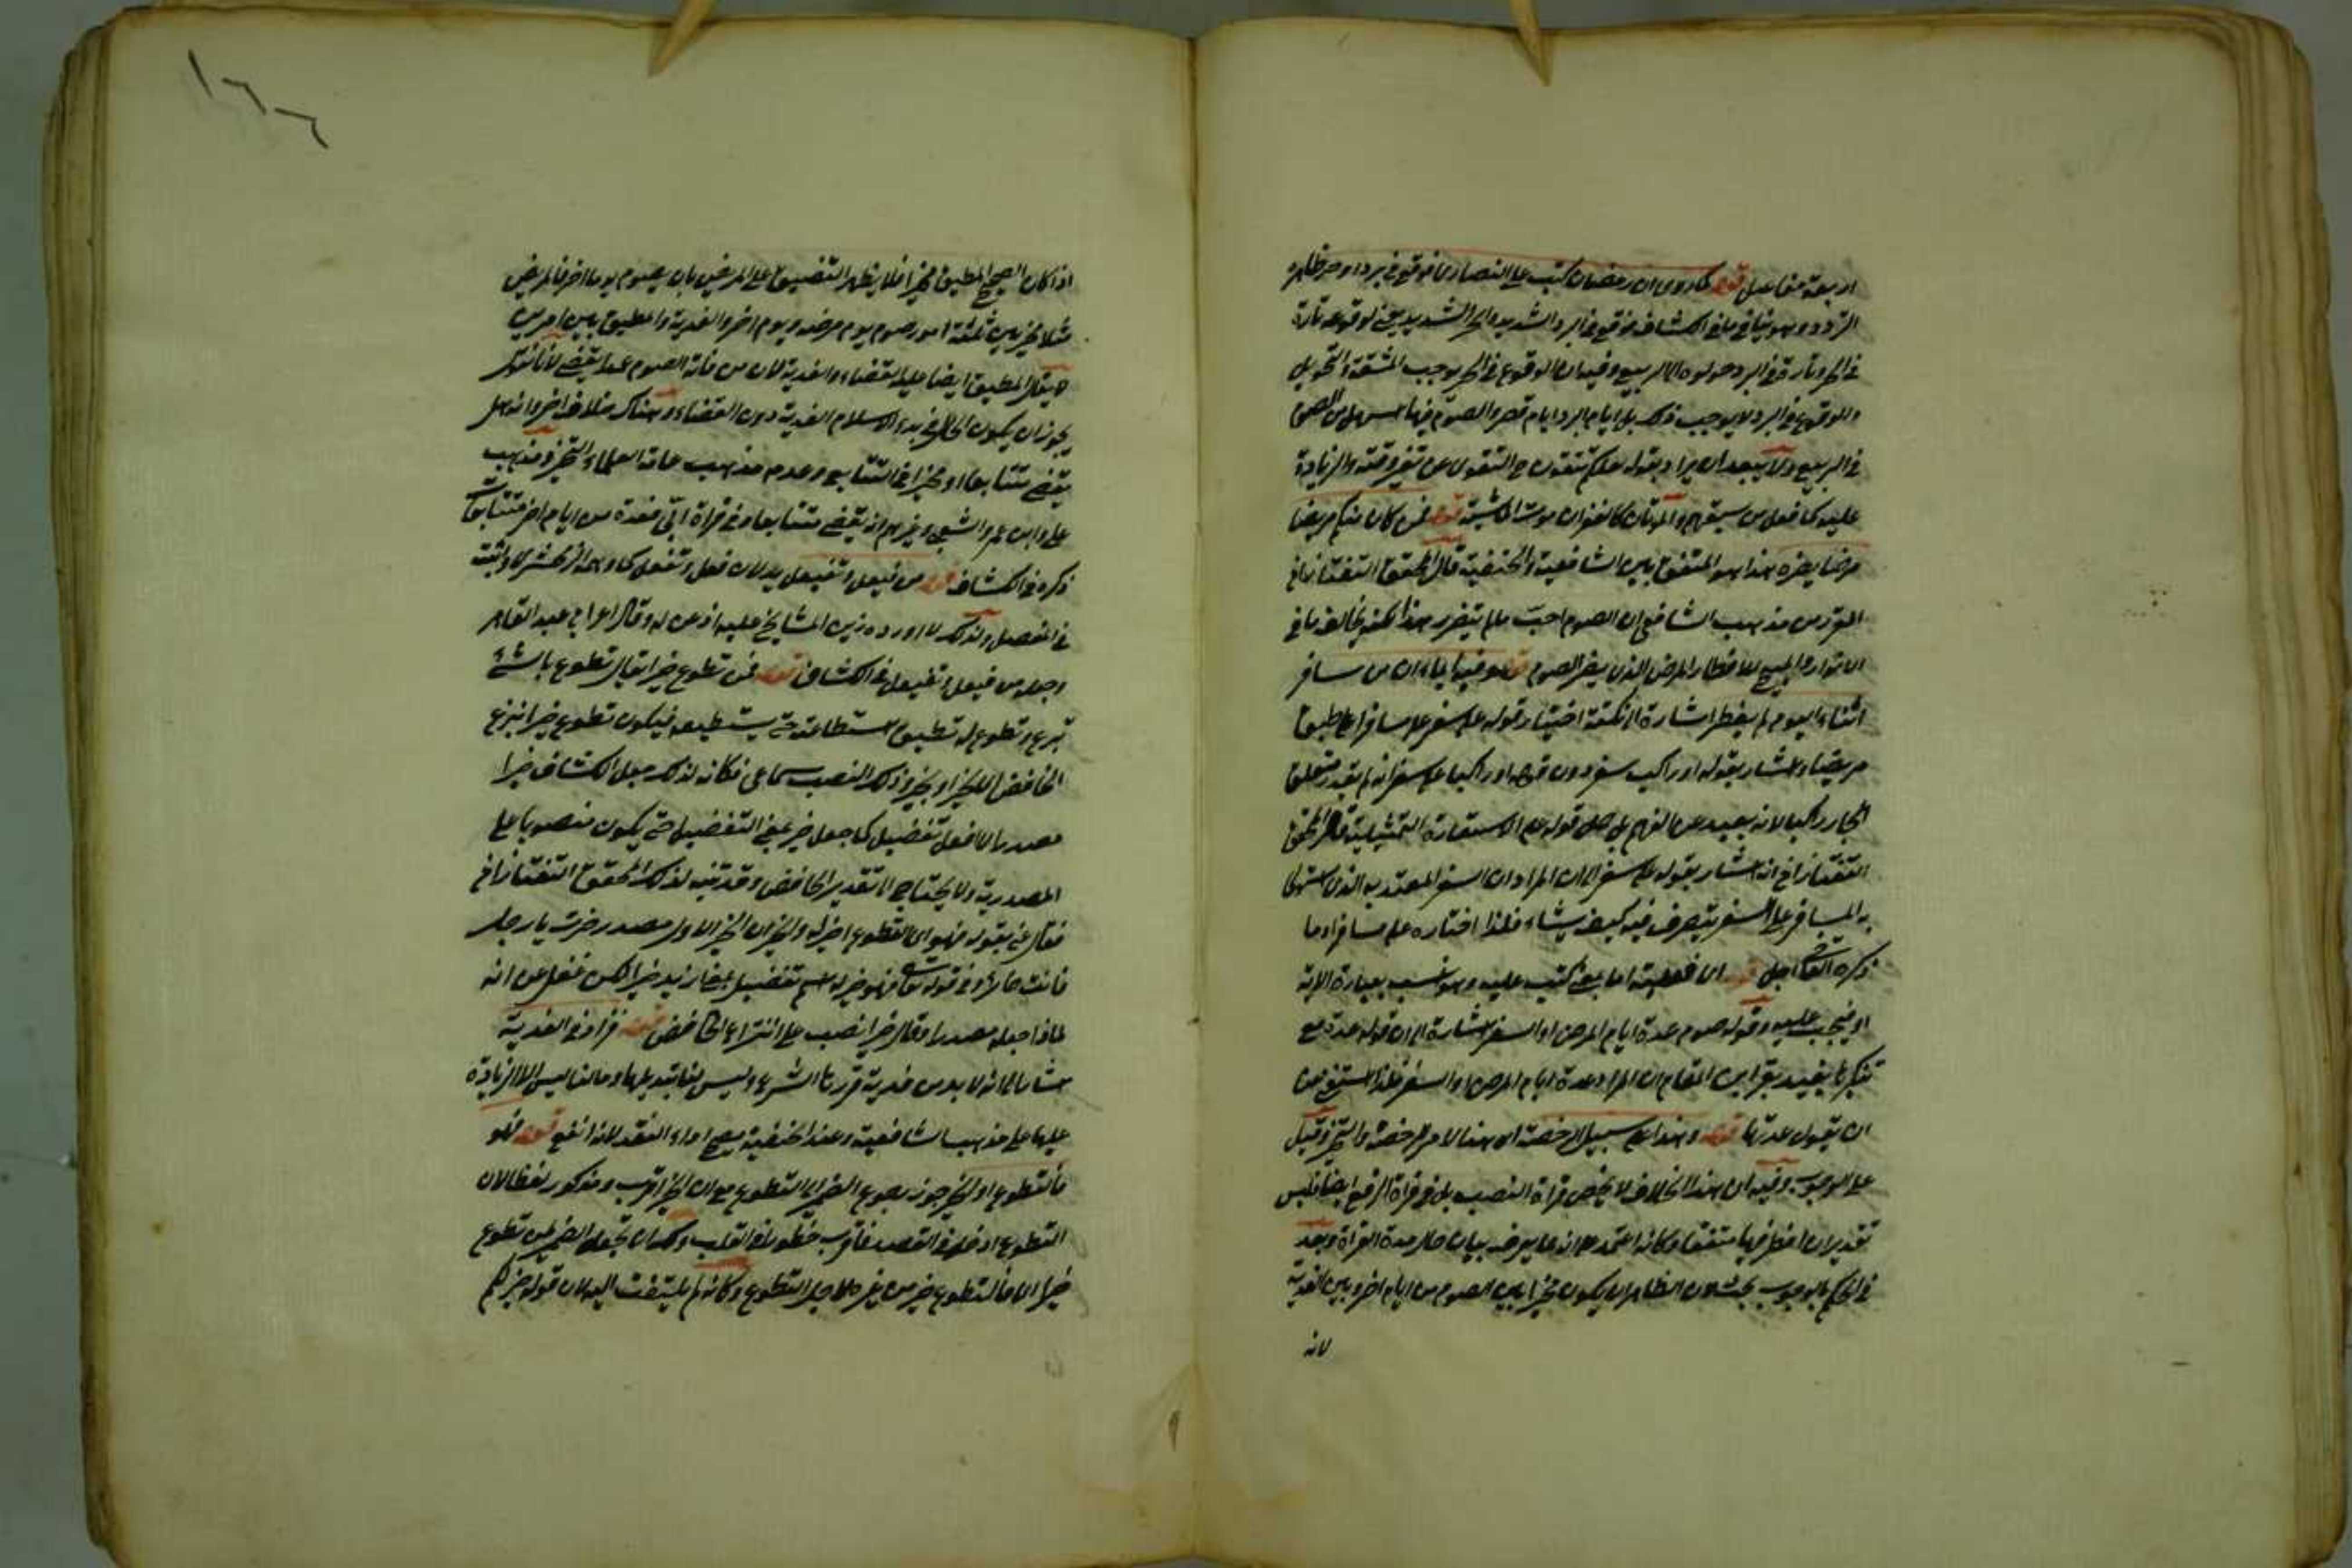 اربعة مفاعيل قوله كما روى ان رمضان كتب على النصارى فوقع في برد او حر ظاهره
التردد وهو ينافي ما في الكشاف فوقع في البرد الشديد والحر الشديد يعني لوقوعه تارة
في الحر وتارة في البرد حولوه الى الربيع وفيه ان الوقوع في الحر يوجب المشقة والتحويل
والوقوع في البرد لا يوجب ذلك بل ايام البرد ايام قصر والصوم فيها اسهل من الصوم
في الربيع ولا يبعد ان يراد بقوله لعلكم تتقون ح التقوى عن تغيير وقته والزيادة
عليه كما فعل من سبقهم والموتان كالغفران موت الماشية قوله فمن كان منكم مريضا
مرضا يضره هذا هو المتفق بين الشافعية والحنفية قال المحقق التفتازاني
المقرر من مذهب الشافعي ان الصوم احب ما لم يتضرر هذا لكنه يخالف ما في
الانوار والمبيح للافطار المرض الذي يضر الصوم قوله وفيه ايماء ان من سافر
اثناء اليوم لم يفطر اشارة الى نكتة اختيار قوله على سفر على مسافرا ليطابق
مريضا واشار بقوله او راكب سفر دون قوله او راكبا على سفر انه لم يقدر متعلق
الجار راكبا لانه بعيد عن الفهم بل حمل قوله على الاستعارة التمثيلية قال المحقق
التفتازاني انه اشار بقوله على سفر الى ان المراد ان السفر المعتد به الذي استولى
به المسافر على السفر يتصرف فيه كيف يشاء فلذا اختاره على مسافرا وما
ذكره القاضي اجل قوله اي فعليه اما بمعنى كتب عليه وهو انسب بعبارة الآية
او فيجب عليه وقوله صوم عدة ايام المرض او السفر اشارة الى ان قوله عدة مع
تنكيرها يفيد بقرائن المقام ان المراد عدة ايام المرض او السفر فلذا استغنى عن
ان يقول عدتها قوله وهذا على سبيل الرخصة اي هذا الامر للرخصة والتخيير وقيل
على الوجوب وفيه ان هذا الخلاف لا يخص قراة النصب بل في قراة الرفع ايضا فليس
تقدير ان افطر فيها متفقا وكانه اعتمد على انه ما يعرف ببيان حال هذه القراة وبعد
في الحكم بالوجوب بحث لان الظاهر ان يكون مخيرا بين الصوم من ايام اخر وبين الفدية
لانه
١٦٦
اذا كان الصحيح المطيق مخيرا فلا يظهر التضييق على المريض بان يصوم يوما اخر فالمريض
مثلا مخير بين ثلثة امور صوم يوم مرضه ويوم اخر والفدية والمطيق بين امرين
لا يقال المطيق ايضا عليه القضاء والفدية لان من فاته الصوم عمدا يقضي لانا نقول
يجوز ان يكون الحال في بدء الاسلام الفدية دون القضاء وهناك خلاف اخر وانه هل
يقضي متتابعا او مخيرا في التتابع وعدم مذهب عامة العلماء التخيير ومذهب
علي وابن عمر والشعبي وغيرهم انه يقضي متتابعا وفي قراة ابي فعدة من ايام اخر متتابعات
ذكره في الكشاف قوله من فيعل وتفيعل يدلان فعل وتفعل كما وهمه الزمخشري واثبته
في المفصل ولذلك لما اورده زين المشايخ عليه اذعن له وقال اعرابي عبد القاهر
وجعله من فيعل وتفيعل في الكشاف قوله فمن تطوع خيرا يقال تطوع بالشئ
تبرع وتطوع له تطبيق استطاعته حتى يستطيعه فيكون تطوع خيرا بنزع
الخافض للخير او بخير وذلك النصب سماعي فكانه لذلك جعل الكشاف خيرا
مصدرا لا افعل تفضيل كما جعل خير بمعنى التفضيل حتى يكون منصوبا على
المصدرية ولا يحتاج الى تقدير الخافض وقد تنبه لذلك المحقق التفتازاني
فقال في بقوله فهو اي التطوع اخير له والخير ان الخير الاول مصدر خرت يا رجل
فانت خائر وفي قوله تعالى فهو خير له اسم تفضيل بمعنى ازيد خيرا لكن غفل عن انه
لماذا جعله مصدرا وقال خيرا نصب على انتزاع الخافض قوله فزاد في الفدية
اشارة الى انه لا بد من فدية قررها الشرع وليس لنا تبديلها وما لنا ليس الا الزيادة
عليها على مذهب الشافعية وعند الحنفية يصح اداء النقد لانه انفع قوله فهو
فالتطوع او الخير جوز رجوع الضمير الى التطوع مع ان الخير اقرب ومذكور لفظا لان
التطوع ادخل في القصد فاقرب خطورا في القلب ولك ان تجعل الضمير لمن تطوع
خيرا اي فالتطوع خير من غيره لاجل التطوع وكانه لم يلتفت اليه لان قوله خير لكم